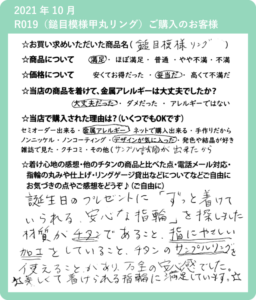 2021年10月
R019（鎚目模様甲丸リング）ご購入のお客様
☆お買い求めいただいた商品名（鎚目模様リング）
☆商品について 満足・ほぼ満足・普通・やや不満・不満
☆価格について 安くてお得だった・妥当だ・高くて不満だ
☆当店の商品を着けて、金属アレルギーは大丈夫でしたか？
大丈夫だった・ダメだった・アレルギーではない
☆当店で購入された理由は？（いくつでもOKです）
セミオーダー出来る・金属アレルギー・ネットで購入出来る・手作りだから
ノンニッケル・ノンコーティング・デザインが気に入った・発色や結晶が好き
雑誌で見た・クチコミ・その他（サンプルが出来たから
☆着け心地の感想・他のチタンの商品と比べた点・電話メール対応・
指輪の丸みや仕上げ・リングゲージ貸出などについてなどご自由に
お気づきの点やご感想をどうぞ♪（ご自由に）
誕生日のプレゼントに「ずっと着けて
いられる、安心な指輪」を探しました
材質がチタンであること、指にやさしい
加工をしていること、チタンのサンプルリングを
使えることがあり、万全の安心感でした。
楽しくて着けられる指輪に満足しています。☆